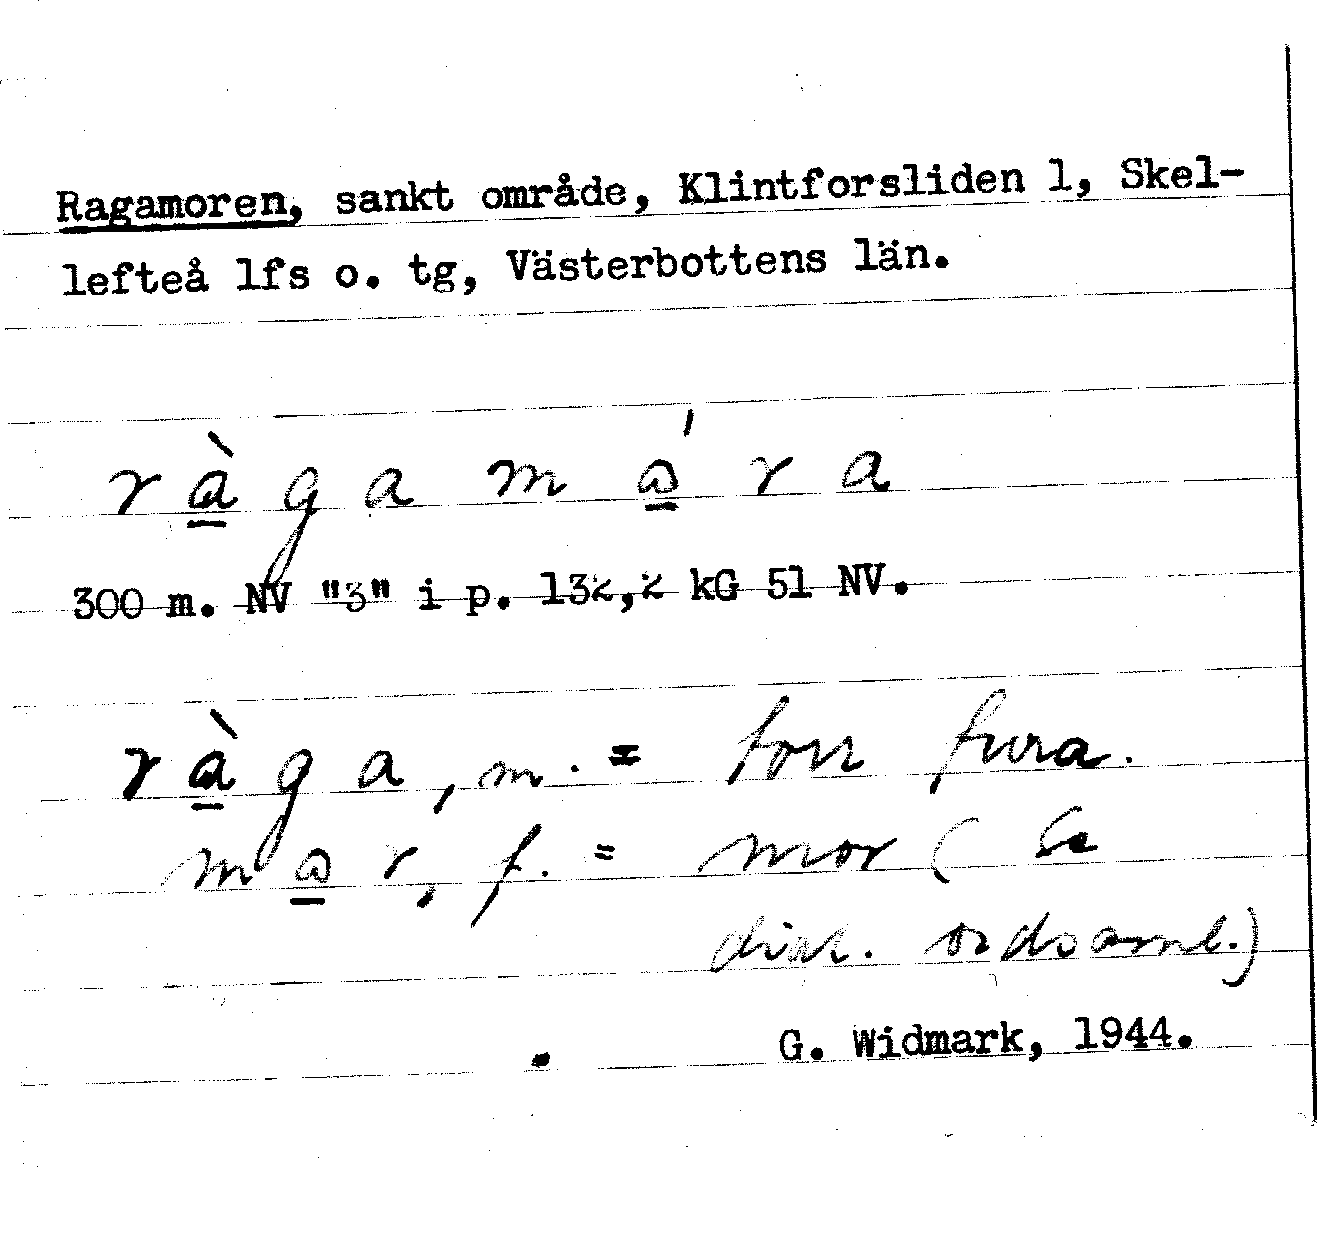 Ragamoren, sankt område, Klintforsliden 1, Skel-
lefteå lfs o. tg, Västerbottens län.
rà̱ga mώ̱ra
300 m. NV "3" i p. 132,2 kG 51 NV.
rà̱ga, m. = torr fura.
mω̱r, f. = mor (Se
dial. ordsaml.)
G. Widmark, 1944.